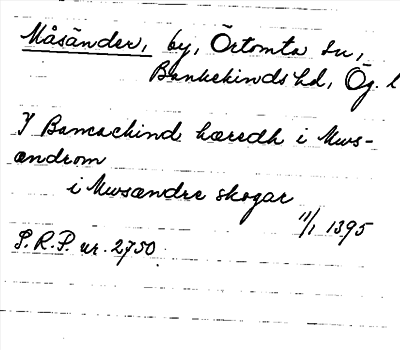 Måsänder, by, Örtomta sn,
Bankekinds hd, Ög. l
J Bancachind hæredh i Mws-
ændrom
i Mwsændre skogar
11/1 1395
S.R.P. nr. 2750